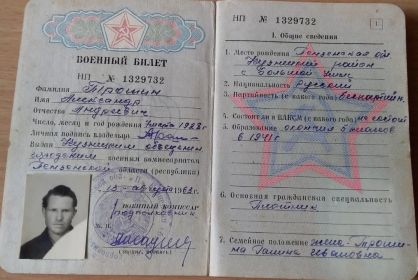 ВОЕННЫЙ БИЛЕТ
НП № 1329732
Фамилия Трошин
Имя Александр
Отчество Андреевич
Число, месяц и год рождения
Личная подпись владельца
Выдан Кузнецким объединённым
городским военным комиссариатом
Пензенской области (республики)
августа 1962 г.
ВОЕННЫЙ КОМИССАР
подполковник
М. П.
НП № 1329732
1.
I. Общие сведения
1. Место рождения Пензенская обл
Кузнецкий район
с. Большой
2. Национальность Русский
3. Партийность (с какого года) беспартийн.
4. Состоял ли в ВЛКСМ (с какого года) не состоял
5. Образование окончил 5 классов
в 1941 г
6. Основная гражданская специальность
Плотник
7. Семейное положение жена - Троши-
на Галина Ивановна